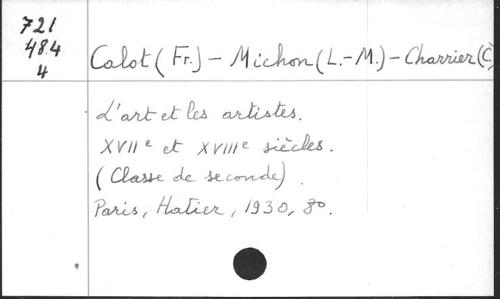 721
484
4
Calot (Fr.) – Michon (L.-M.) – Charrier (C.)
L'art et les artistes.
XVIIe et XVIIIe siècles.
(Classe de seconde).
Paris, Hatier, 1930, 8o.